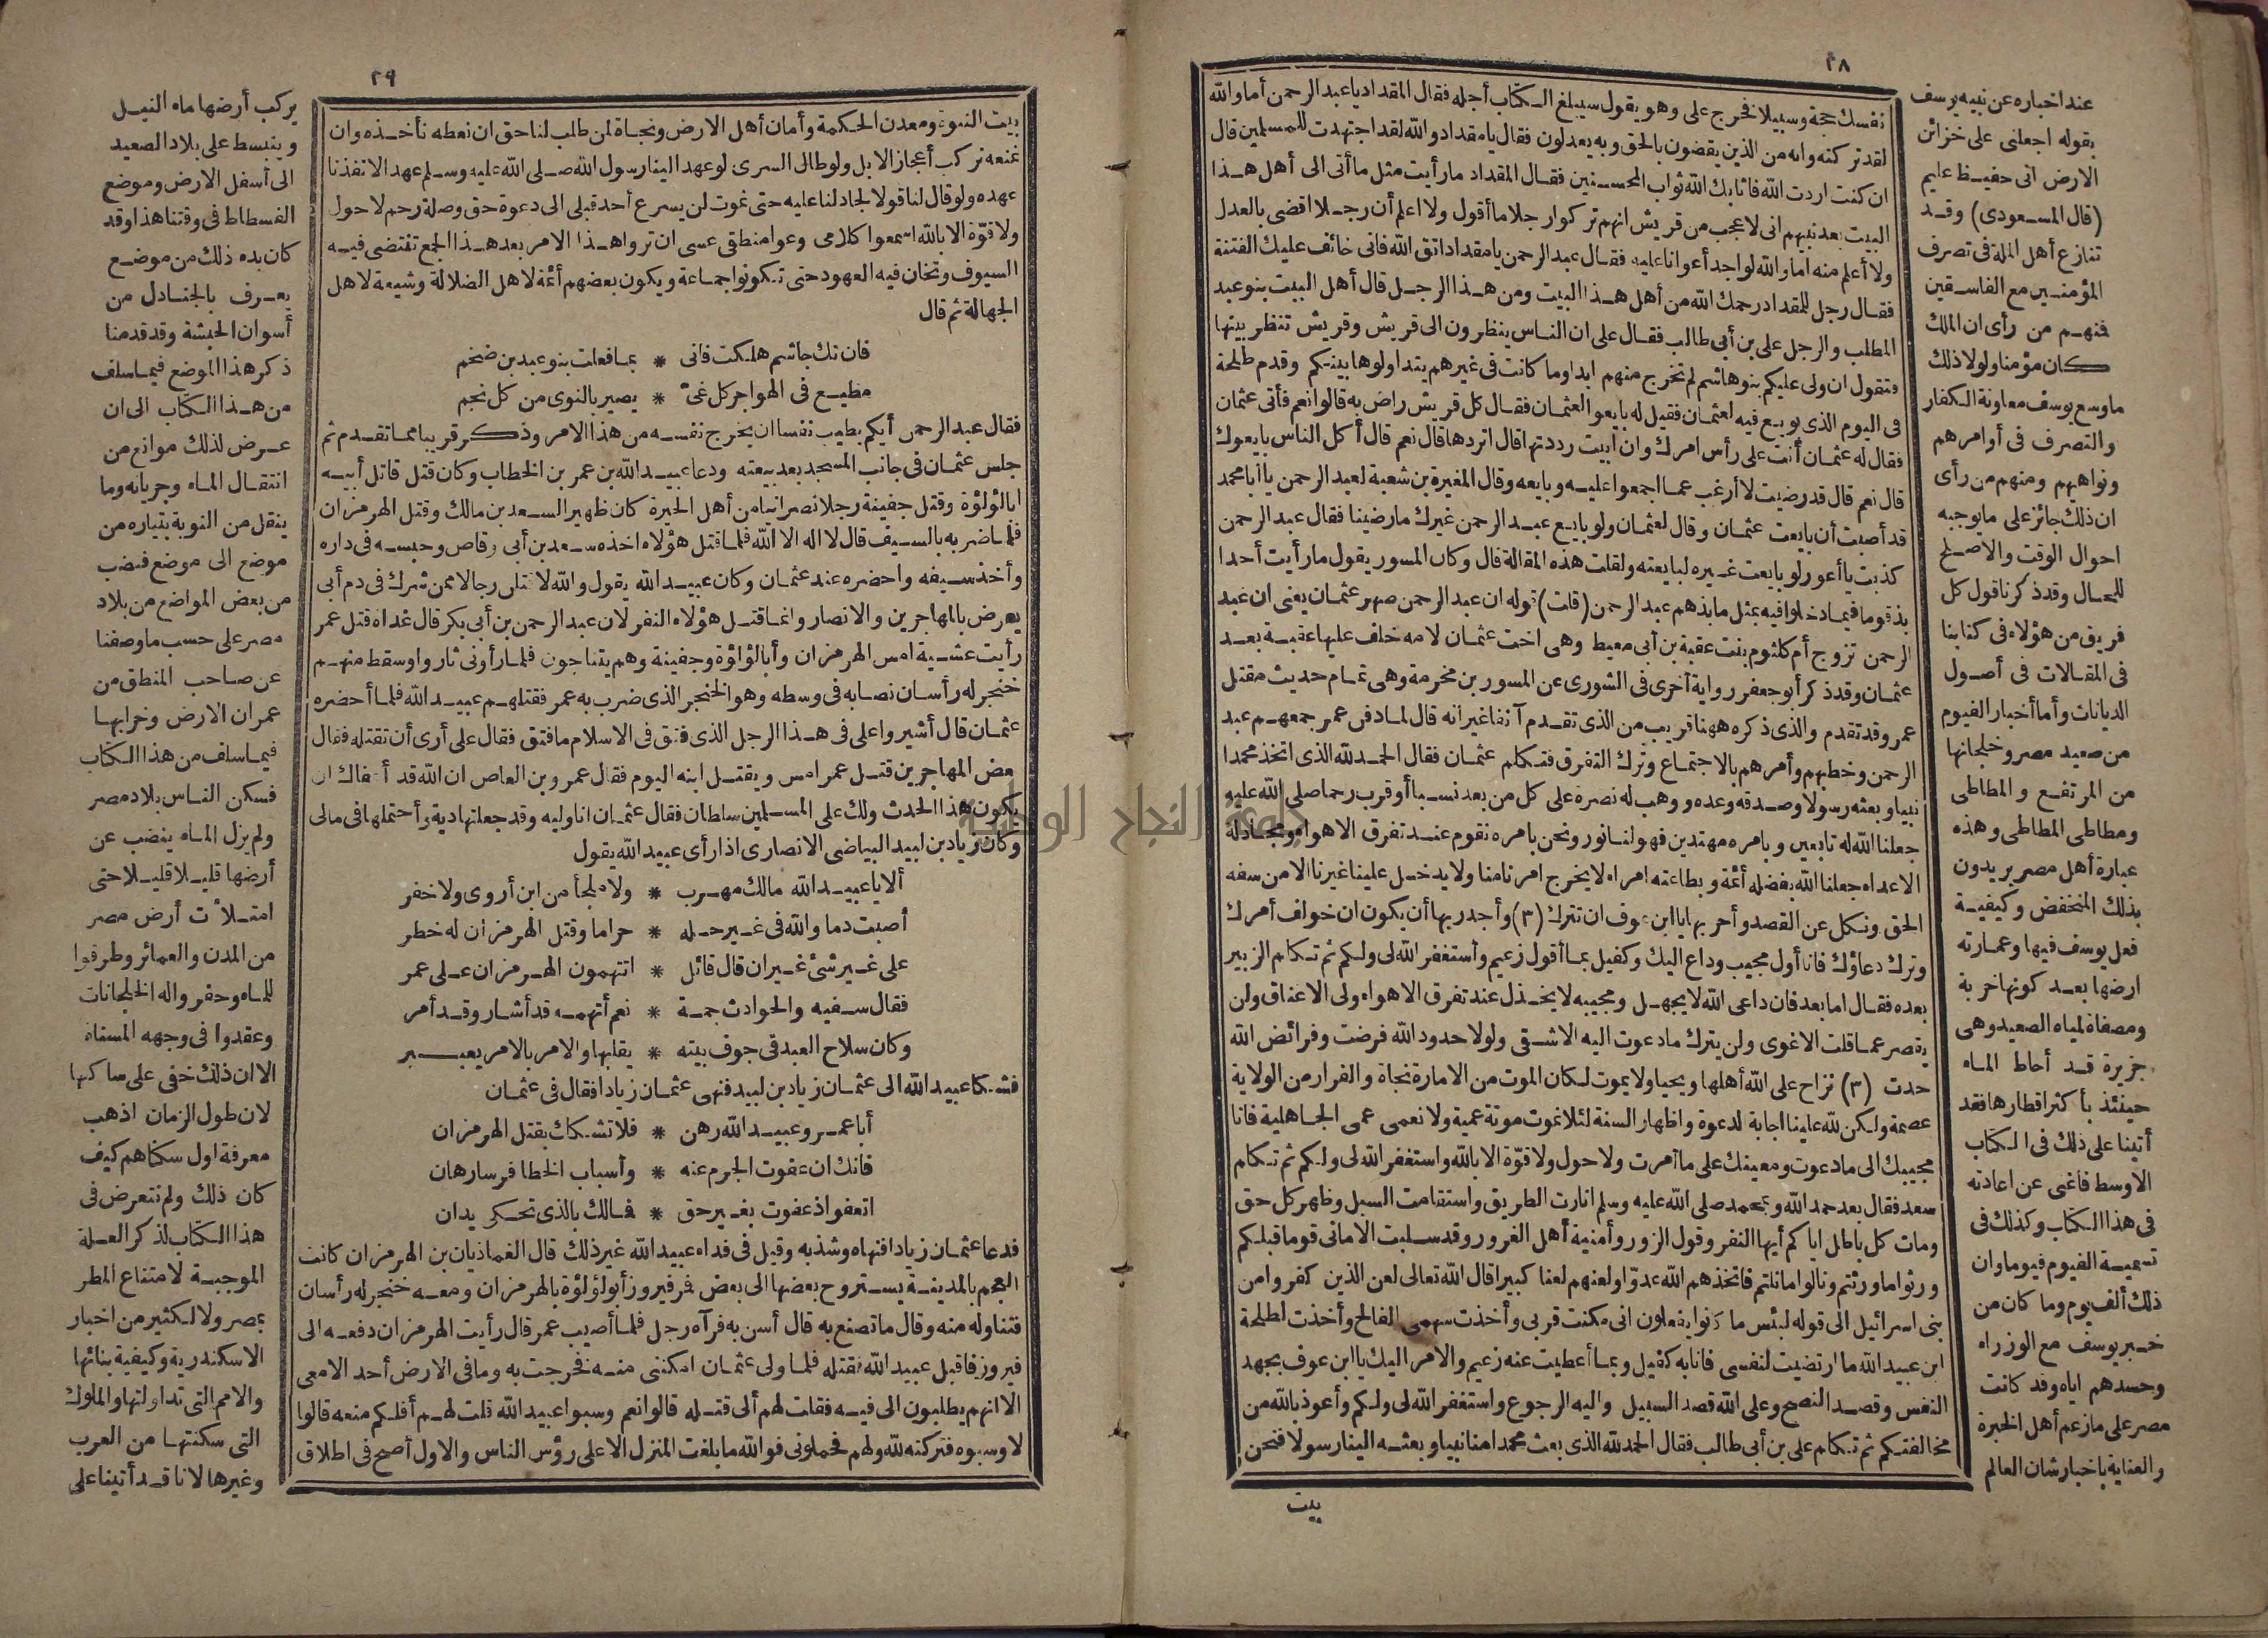 ٣٨
نفسك حجة وسبيلا فخرج على وهو يقول سيبلغ الكتاب أجله فقال المقداد يا عبد الرحمن أما والله
لقد تركته وانه من الذين يقضون بالحق وبه يعدلون فقال يا مقداد والله لقد اجتهدت للمسلمين قال
ان كنت اردت الله فاثابك الله ثواب المحسنين فقال المقداد ما رأيت مثل ما أتى الى أهل هذا
البيت بعد نبيهم انى لاعجب من قريش انهم تركوا رجلا ما أقول ولا اعلم أن رجلا اقضى بالعدل
ولا أعلم منه اما والله لو اجد أعوانا عليه فقال عبد الرحمن يا مقداد اتق الله فانى خائف عليك الفتنة
فقال رجل للمقداد رحمك الله من أهل هذا البيت ومن هذا الرجل قال أهل البيت بنو عبد
المطلب والرجل على بن أبى طالب فقال على ان الناس ينظرون الى قريش وقريش تنظر بينها
فتقول ان ولى عليكم بنو هاشم لم تخرج منهم ابدا وما كانت فى غيرهم يتداولوها بينكم وقدم طلحة
فى اليوم الذى بويع فيه لعثمان فقيل له بايعوا لعثمان فقال كل قريش راض به قالوا نعم فأتى عثمان
فقال له عثمان أنت على رأس امرك وان أبيت رددتها قال اتردها قال نعم قال أكل الناس بايعوك
قال نعم قال قد رضيت لا أرغب عما اجمعوا عليه وبايعه وقال المغيرة بن شعبة لعبد الرحمن يا أبا محمد
قد أصبت أن بايعت عثمان وقال لعثمان ولو بايع عبد الرحمن غيرك ما رضينا فقال عبد الرحمن
كذبت يا أعور لو بايعت غيره لبايعته ولقلت هذه المقالة قال وكان المسور يقول ما رأيت أحدا
بذ قوما فيما دخلوا فيه بمثل ما بذهم عبد الرحمن (قلت) قوله ان عبد الرحمن صهر عثمان يعنى ان عبد
الرحمن تزوج أم كلثوم بنت عقبة بن أبى معيط وهى اخت عثمان لامه خلف عليها عقبة بعد
عثمان وقد ذكر أبو جعفر رواية أخرى فى الشورى عن المسور بن مخرمة وهى تمام حديث مقتل
عمر وقد تقدم والذى ذكره ههنا قريب من الذى تقدم آنفا غير انه قال لما دفن عمر جمعهم عبد
الرحمن وخطبهم وأمرهم بالاجتماع وترك التفرق فتكلم عثمان فقال الحمد لله الذى اتخذ محمدا
نبيا وبعثه رسولا وصدقه وعده ووهب له نصره على كل من بعد نسبا أو قرب رحما صلى الله عليه
جعلنا الله له تابعين وبامره مهتدين فهو لنا نور ونحن بامره نقوم عند تفرق الاهواء ومجادلة
الاعداء جعلنا الله بفضله أئمة وبطاعته امراء لا يخرج امرنا منا ولا يدخل علينا غيرنا الا من سفه
الحق ونكل عن القصد وأحر بها يا ابن عوف ان تترك (٣) وأجدر بها أن يكون ان خولف أمرك
وترك دعاؤك فانا أول مجيب وداع اليك وكفيل بما أقول زعيم وأستغفر الله لى ولكم ثم تكلم الزبير
بعده فقال اما بعد فان داعى الله لا يجهل ومجيبه لا يخذل عند تفرق الاهواء ولى الاعناق ولن
يقصر عما قلت الا غوى ولن يترك ما دعوت اليه الا شقى ولولا حدود الله فرضت وفرائض الله
حدت (٣) تراح على الله أهلها ويحيا ولا يموت لكان الموت من الامارة نجاة والفرار من الولاية
عصمة ولكن لله علينا اجابة لدعوة واظهار السنة لئلا نموت موتة عمية ولا نعمى عمى الجاهلية فانا
مجيبك الى ما دعوت ومعينك على ما أمرت ولا حول ولا قوّة الا بالله واستغفر الله لى ولكم ثم تكلم
سعد فقال بعد حمد الله وبمحمد صلى الله عليه وسلم انارت الطريق واستقامت السبل وظهر كل حق
ومات كل باطل اياكم أيها النفر وقول الزور وأمنية أهل الغرور وقد سلبت الامانى قوما قبلكم
ورثوا ما ورثتم ونالوا ما نلتم فاتخذهم الله عدوّا ولعنهم لعنا كبيرا قال الله تعالى لعن الذين كفروا من
بنى اسرائيل الى قوله لبئس ما كانوا يفعلون انى نكبت قرنى وأخذت سهمى الفالج وأخذت لطلحة
ابن عبيد الله ما ارتضيت لنفسى فانا به كفيل وبما أعطيت عنه زعيم والامر اليك يا ابن عوف بجهد
النفس وقصد النصح وعلى الله قصد السبيل واليه الرجوع واستغفر الله لى ولكم وأعوذ بالله من
مخالفتكم ثم تكلم على بن أبى طالب فقال الحمد لله الذى بعث محمدا منا نبيا وبعثه الينا رسولا فنحن
بيت
عند اخباره عن نبيه يوسف
بقوله اجعلنى على خزائن
الارض انى حفيظ عليم
(قال المسعودى) وقد
تنازع أهل الملة فى تصرف
المؤمنين مع الفاسقين
فمنهم من رأى ان الملك
كان مؤمنا ولولا ذلك
ما وسع يوسف معاونة الكفار
والتصرف فى أوامرهم
ونواهيهم ومنهم من رأى
ان ذلك جائز على ما يوجبه
احوال الوقت والاصلح
للحال وقد ذكرنا قول كل
فريق من هؤلاء فى كتابنا
فى المقالات فى أصول
الديانات وأما أخبار الفيوم
من صعيد مصر وخلجانها
من المرتفع والمطاطى
ومطاطى المطاطى وهذه
عبارة أهل مصر يريدون
بذلك المنخفض وكيفية
فعل يوسف فيها وعمارته
ارضها بعد كونها خربة
ومصفاة لمياه الصعيد وهى
جزيرة قد أحاط الماء
حينئذ بأكثر اقطارها فقد
أتينا على ذلك فى الكتاب
الاوسط فاغنى عن اعادته
فى هذا الكتاب وكذلك فى
تسمية الفيوم فيوما وان
ذلك ألف يوم وما كان من
خبر يوسف مع الوزراء
وحسدهم اياه وقد كانت
مصر على ما زعم أهل الخبرة
والعناية باخبار شان العالم
٣٩
بيت النبوة ومعدن الحكمة وأمان أهل الارض ونجاة لمن طلب لنا حق ان نعطه نأخذه وان
نمنعه نركب أعجاز الابل ولو طال السرى لو عهد الينا رسول الله صلى الله عليه وسلم عهدا لانفذنا
عهده ولو قال لنا قولا لجادلنا عليه حتى نموت لن يسرع أحد قبلى الى دعوة حق وصلة رحم لا حول
ولا قوّة الا بالله اسمعوا كلامى وعوا منطقى عسى ان تروا هذا الامر بعد هذا الجمع تنتضى فيه
السيوف وتخان فيه العهود حتى تكونوا جماعة ويكون بعضهم أئمة لاهل الضلالة وشيعة لاهل
الجهالة ثم قال
فان تك جاشم هلكت فانى * بما فعلت بنو عبد بن ضخم
مطيع فى الهواجر كل غىّ * بصير بالنوى من كل نجم
فقال عبد الرحمن أيكم يطيب نفسا ان يخرج نفسه من هذا الامر وذكر قريبا مما تقدم ثم
جلس عثمان فى جانب المسجد بعد بيعته ودعا عبيد الله بن عمر بن الخطاب وكان قتل قاتل أبيه
ابا لؤلؤة وقتل جفينة رجلا نصرانيا من أهل الحيرة كان ظهيرا لسعد بن مالك وقتل الهرمزان
فلما ضربه بالسيف قال لا اله الا الله فلما قتل هؤلاء اخذه سعد بن أبى وقاص وحبسه فى داره
وأخذ سيفه واحضره عند عثمان وكان عبيد الله يقول والله لاقتلن رجالا ممن شرك فى دم أبى
يعرض بالمهاجرين والانصار وانما قتل هؤلاء النفر لان عبد الرحمن بن أبى بكر قال غداة قتل عمر
رأيت عشية امس الهرمزان وأبا لؤلؤة وجفينة وهم يتناجون فلما رأونى ثاروا وسقط منهم
خنجر له رأسان نصابه فى وسطه وهو الخنجر الذى ضرب به عمر فقتلهم عبيد الله فلما أحضره
عثمان قال أشيروا على فى هذا الرجل الذى فتق فى الاسلام ما فتق فقال على أرى أن تقتله فقال
بعض المهاجرين قتل عمر امس ويقتل ابنه اليوم فقال عمرو بن العاص ان الله قد أعفاك ان
يكون هذا الحدث ولك على المسلمين سلطان فقال عثمان انا وليه وقد جعلتها دية وأحتملها فى مالى
وكان زياد بن لبيد البياضى الانصارى اذا رأى عبيد الله يقول
ألا يا عبيد الله مالك مهرب * ولا ملجأ من ابن أروى ولا خفر
أصبت دما والله فى غير حله * حراما وقتل الهرمزان له خطر
على غير شئ غير ان قال قائل * اتتهمون الهرمزان على عمر
فقال سفيه والحوادث جمة * نعم أتهمه قد أشار وقد أمر
وكان سلاح العبد فى جوف بيته * يقلبها والامر بالامر يعتبر
فشكا عبيد الله الى عثمان زياد بن لبيد فنهى عثمان زيادا فقال فى عثمان
أبا عمرو عبيد الله رهن * فلا تشكك بقتل الهرمزان
فانك ان عفوت الجرم عنه * وأسباب الخطا فرسا رهان
اتعفو اذ عفوت بغير حق * فمالك بالذى تحكى يدان
فدعا عثمان زيادا فنهاه وشذبه وقيل فى فداء عبيد الله غير ذلك قال الغماذيان بن الهرمزان كانت
العجم بالمدينة يستروح بعضها الى بعض فمر فيروز أبو لؤلؤة بالهرمزان ومعه خنجر له رأسان
فتناوله منه وقال ما تصنع به قال أسن به فرآه رجل فلما أصيب عمر قال رأيت الهرمزان دفعه الى
فيروز فاقبل عبيد الله فقتله فلما ولى عثمان امكننى منه فخرجت به وما فى الارض أحد الا معى
الا انهم يطلبون الى فيه فقلت لهم ألى قتله قالوا نعم وسبوا عبيد الله قلت لهم أفلكم منعه قالوا
لا وسبوه فتركته لله ولهم فحملونى فوالله ما بلغت المنزل الا على رؤس الناس والاول أصح فى اطلاق
يركب أرضها ماء النيل
وينبسط على بلاد الصعيد
الى أسفل الارض وموضع
الفسطاط فى وقتنا هذا وقد
كان بدء ذلك من موضع
يعرف بالجنادل من
أسوان الحبشة وقد قدمنا
ذكر هذا الموضع فيما سلف
من هذا الكتاب الى ان
عرض لذلك موانع من
انتقال الماء وجريانه وما
ينقل من النوبة بتياره من
موضع الى موضع فنضب
من بعض المواضع من بلاد
مصر على حسب ما وصفنا
عن صاحب المنطق من
عمران الارض وخرابها
فيما سلف من هذا الكتاب
فسكن الناس بلاد مصر
ولم يزل الماء ينضب عن
أرضها قليلا قليلا حتى
امتلأت أرض مصر
من المدن والعمائر وطرقوا
للماء وحفروا له الخلجانات
وعقدوا فى وجهه المسناة
الا ان ذلك خفى على ساكنها
لان طول الزمان اذهب
معرفة اول سكناهم كيف
كان ذلك ولم نتعرض فى
هذا الكتاب لذكر العلة
الموجبة لامتناع المطر
بمصر ولا لكثير من اخبار
الاسكندرية وكيفية بنائها
والامم التى تداولتها والملوك
التى سكنتها من العرب
وغيرها لانا قد أتينا على
النجاح الوطنية